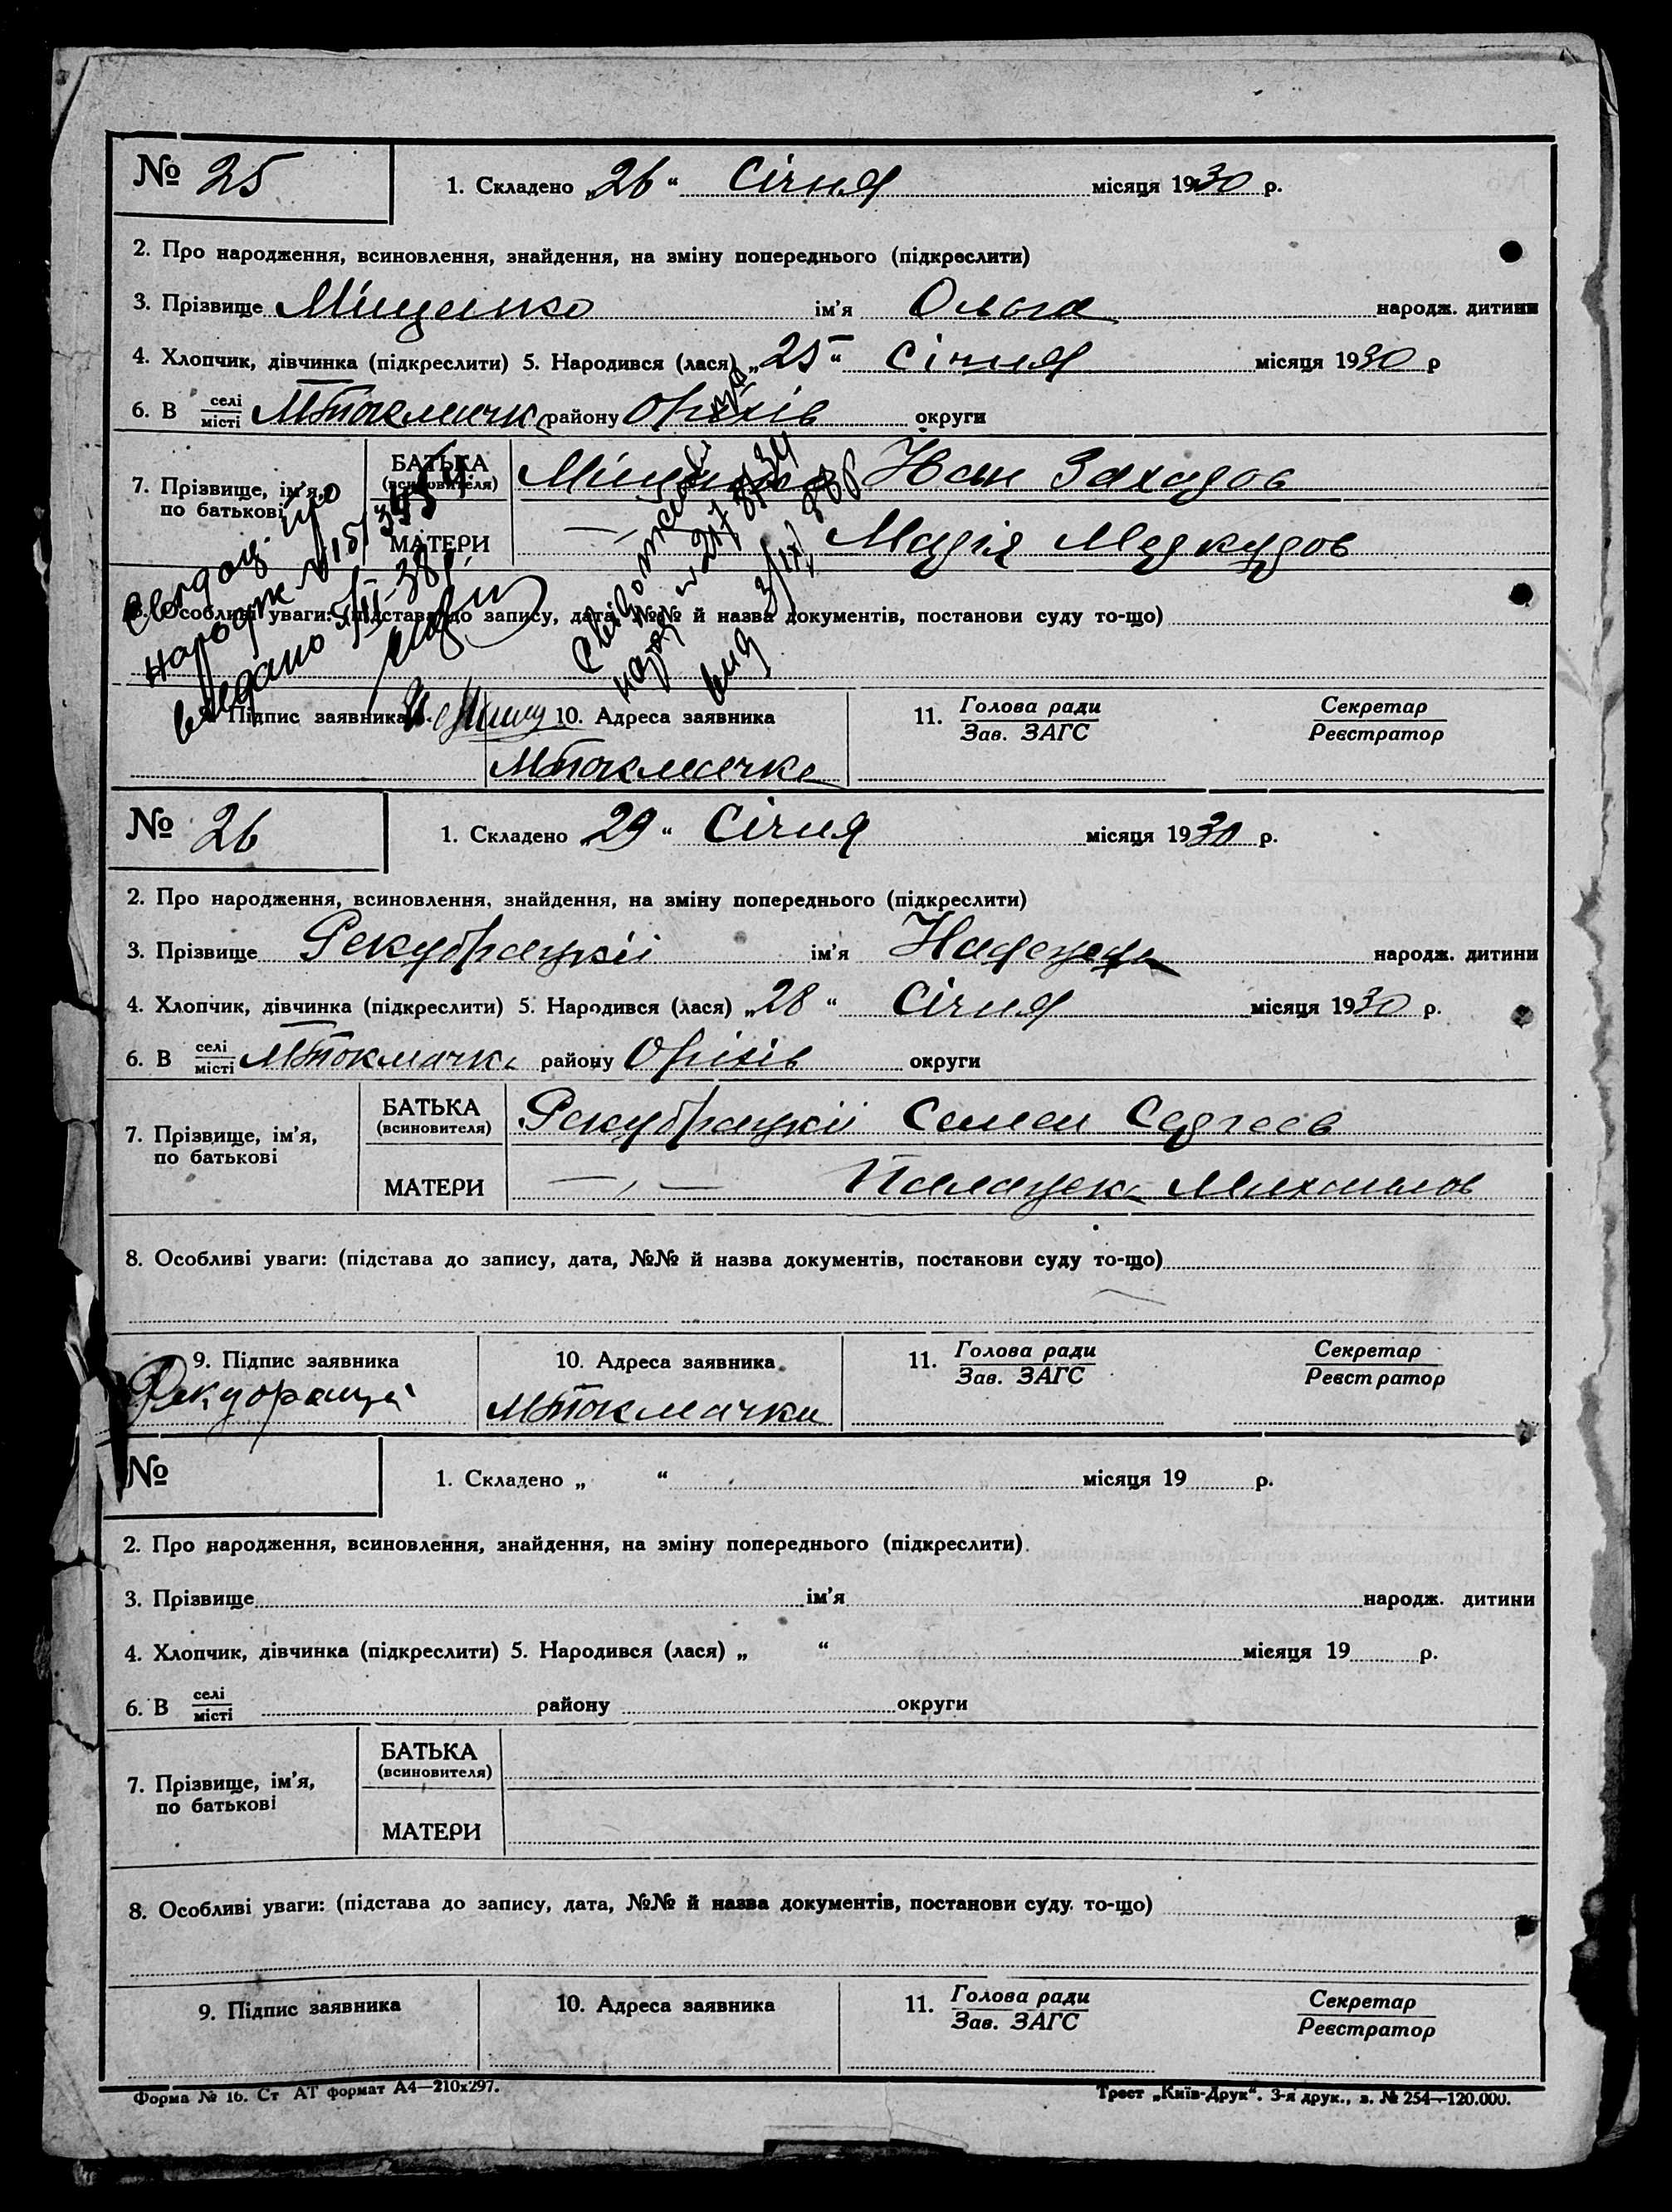 № 25
1. Складено „26“ Січня місяця 1930 р.
2. Про народження, всиновлення, знайдення, на зміну попереднього (підкреслити)
3. Прізвище Міщенко ім'я Ольга народж. дитини
4. Хлопчик, дівчинка (підкреслити) 5. Народився (лася) „25“ Січня місяця 1930 р
6. В селі місті МТокмачк району Оріхів округи
7. Прізвище, ім'я, по батькові
БАТЬКА (всиновителя) Міщенко Іван Захаров
МАТЕРИ —„— Марія Меркуров
8. Особливі уваги: (підстава до запису, дата, №№ й назва документів, постанови суду то-що)
видано
9. Підпис заявника 10. Адреса заявника 11. Голова ради Секретар
Зав. ЗАГС Реєстратор
МТокмачка
№ 26
1. Складено „29“ Січня місяця 1930 р.
2. Про народження, всиновлення, знайдення, на зміну попереднього (підкреслити)
3. Прізвище Рекубрацкій ім'я народж. дитини
4. Хлопчик, дівчинка (підкреслити) 5. Народився (лася) „28“ Січня місяця 1930 р.
6. В селі місті МТокмачка району Оріхів округи
7. Прізвище, ім'я, по батькові
БАТЬКА (всиновителя) Рекубрацкій Семен Сергеев
МАТЕРИ —„— Михаилов
8. Особливі уваги: (підстава до запису, дата, №№ й назва документів, постанови суду то-що)
9. Підпис заявника 10. Адреса заявника 11. Голова ради Секретар
Зав. ЗАГС Реєстратор
МТокмачки
№
1. Складено „ “ місяця 19 р.
2. Про народження, всиновлення, знайдення, на зміну попереднього (підкреслити).
3. Прізвище ім'я народж. дитини
4. Хлопчик, дівчинка (підкреслити) 5. Народився (лася) „ “ місяця 19 р.
6. В селі місті району округи
7. Прізвище, ім'я, по батькові
БАТЬКА (всиновителя)
МАТЕРИ
8. Особливі уваги: (підстава до запису, дата, №№ й назва документів, постанови суду то-що)
9. Підпис заявника 10. Адреса заявника 11. Голова ради Секретар
Зав. ЗАГС Реєстратор
Форма № 16. Ст АТ формат А4—210х297. Трест „Київ-Друк“. 3-я друк., з. № 254—120.000.